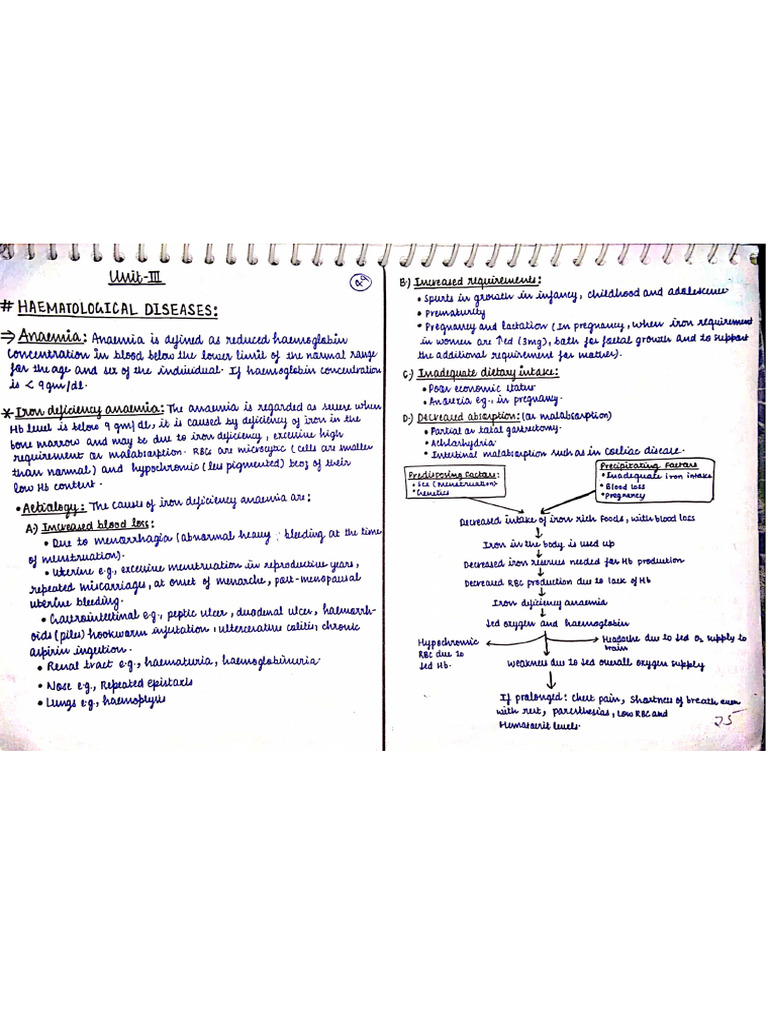 Unit-III
29
# HAEMATOLOGICAL DISEASES:
⇒ Anaemia: Anaemia is defined as reduced haemoglobin
concentration in blood below the lower limit of the normal range
for the age and sex of the individual. If haemoglobin concentration
is < 9gm/dl.
* Iron deficiency anaemia: The anaemia is regarded as severe when
Hb level is below 9 gm/dl, it is caused by deficiency of iron in the
bone marrow and may be due to iron deficiency, excessive high
requirement or malabsorption. RBCs are microcytic (cells are smaller
than normal) and hypochromic (less pigmented) bcoz of their
low Hb content.
• Aetiology: The causes of iron deficiency anaemia are:
A.) Increased blood loss:
• Due to menorrhagia (abnormal heavy bleeding at the time
of menstruation).
• Uterine e.g., excessive menstruation in reproductive years,
repeated miscarriages, at onset of menarche, post-menopausal
uterine bleeding.
• Gastrointestinal e.g., peptic ulcer, duodenal ulcer, haemorrh-
oids (piles) hookworm infestation, ultercerative colitis, chronic
aspirin ingestion.
• Renal tract e.g., haematuria, haemoglobinuria.
• Nose e.g., Repeated epistaxis
• Lungs e.g., haemoplysis
B.) Increased requirements:
• Spurts in growth in infancy, childhood and adolescence
• Prematurity
• Pregnancy and lactation (In pregnancy, when iron requirement
in women are ↑ed (3mg), both for foetal growth and to support
the additional requirement for mother).
C.) Inadequate dietary intake:
• Poor economic status
• Anorexia e.g., in pregnancy.
D.) Decreased absorption: (or malabsorption)
• Partial or total gastrectomy.
• Achlorhydria
• Intestinal malabsorption such as in Coeliac disease.
Predisposing Factors:
• Sex (menstruation)
• Genetics
Precipitating Factors
• Inadequate iron intake
• Blood loss
• Pregnancy
Decreased intake of iron rich foods, with blood loss
Iron in the body is used up
Decreased iron reserves needed for Hb production
Decreased RBC production due to lack of Hb
Iron deficiency anaemia
↓ed oxygen and haemoglobin
Hypochromic
RBC due to
↓ed Hb.
Headache due to ↓ed O2 supply to
brain
Weakness due to ↓ed overall oxygen supply
If prolonged: chest pain, Shortness of breath even
with rest, paresthesias, Low RBC and
Hematocrit levels.
25